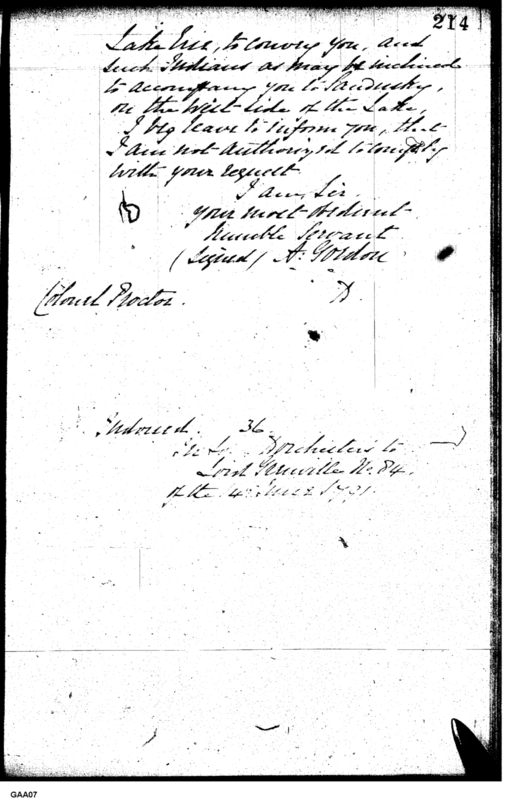 214
Lake Erie, to convey you, and
such Indians as may be inclined
to accompany you to Sandusky,
on the West side of the Lake,
I beg leave to inform you, that
I am not authorized to comply
with your request
I am, Sir
your most obedient
humble Servant
(Signed) A. Gordon
Colonel Proctor.
Indorsed. 36.
In Ld Dorchesters to
Lord Grenville No. 84.
of the 14 June 1791.
GAA07